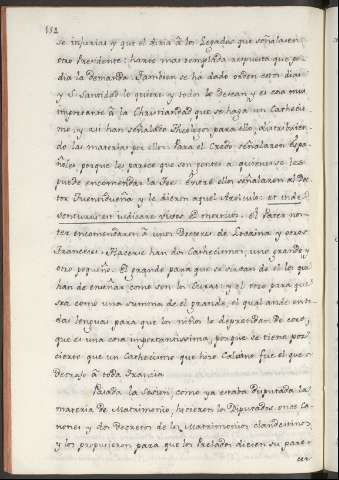 552
se injurias y que el diria à los Legados que señalasen
otro Presidente: harto mas templada respuesta que pe-
dia la demanda. Tambien se ha dado orden estos dias
y S. Santidad lo quiere y todos lo desean y es cosa muy
importante à la Christiandad que se haga un Cathecis-
mo, y asi han señalado Theologos para ello, distribuien-
do las materias por ellos: Para el Credo señalaron Espa-
ñoles porque les parece que son gentes à quienes se les
puede encomendar la Fee. Entre ellos señalaron al Doc-
tor Fuentidueña y le dieron aquel Articulo: et inde
venturus est judicare vivos et mortuos: el Pater nos-
ter encomendaron à unos Doctores de Lobaina y otros
Franceses. Hacerse han dos Cathecismos; uno grande y
otro pequeño. El grande para que se sirvan de el los que
han de enseñar como son los Curas: y el otro para que
sea como una summa de el grande, el qual ande en to-
das lenguas para que los niños lo deprendan de coro,
que es una cosa importantissima, porque se tiene por
cierto que un Cathecismo que hizo Calvino fue el que
destruyò à toda Francia.
Pasada la Sesion, como ya estaba disputada la
materia de Matrimonio, hicieron los Diputados once Ca-
nones y dos Decretos de los Matrimonios clandestinos,
y los propusieron para que los Prelados diesen su pare-
cer